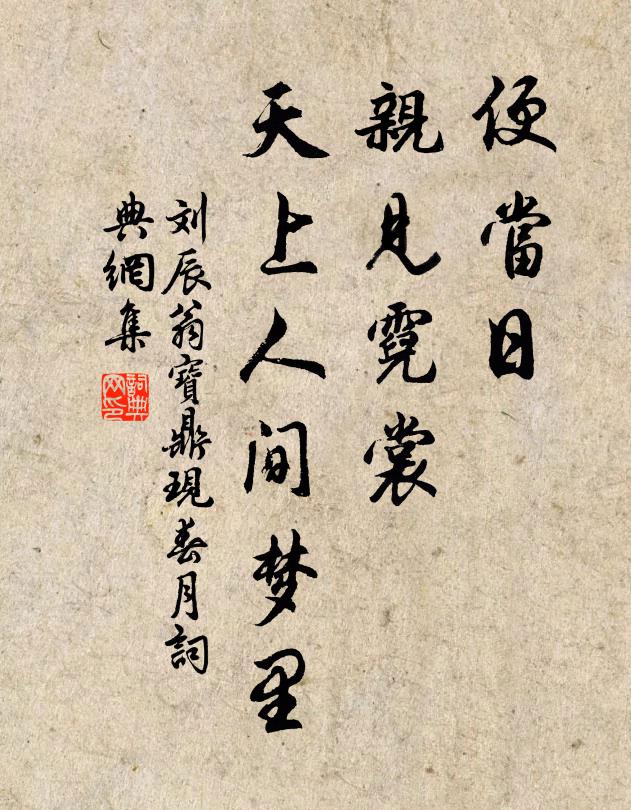 便當日
親見霓裳
天上人间梦里
刘辰翁寶鼎現春月詞
典網集
詞典网印